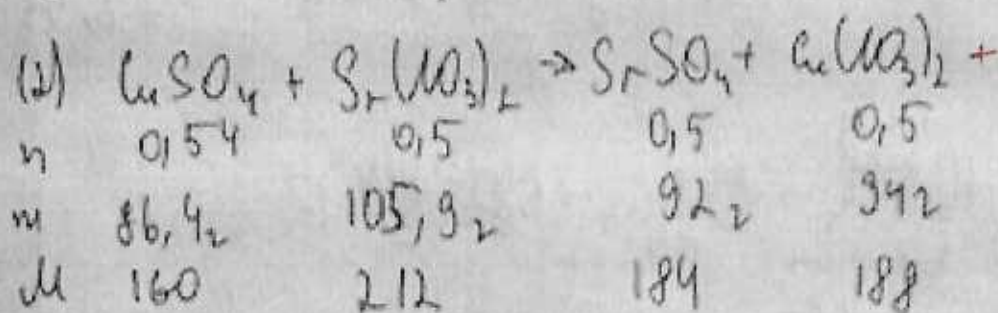 (2) CuSO₄ + Sr(NO₃)₂ → SrSO₄ + Cu(NO₃)₂ +
n 0,54 0,5 0,5 0,5
m 86,4г 105,9г 92г 94г
M 160 212 184 188